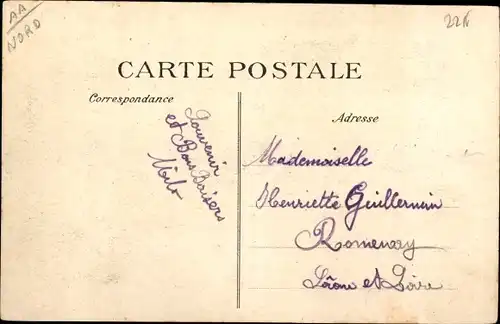 AA
NORD
22 f
CARTE POSTALE
Correspondance
Adresse
Souvenir
et Bons Baisers
Milo
Mademoiselle
Henriette Guillermin
Romenay
Saône et Loire